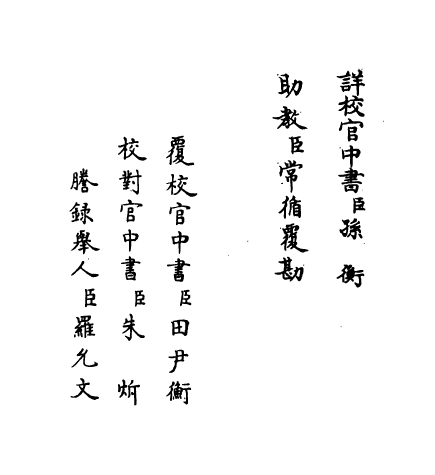 詳校官中書臣孫衡
助教臣常循覆勘
覆校官中書臣田尹衡
校對官中書臣朱炘
謄錄舉人臣羅允文